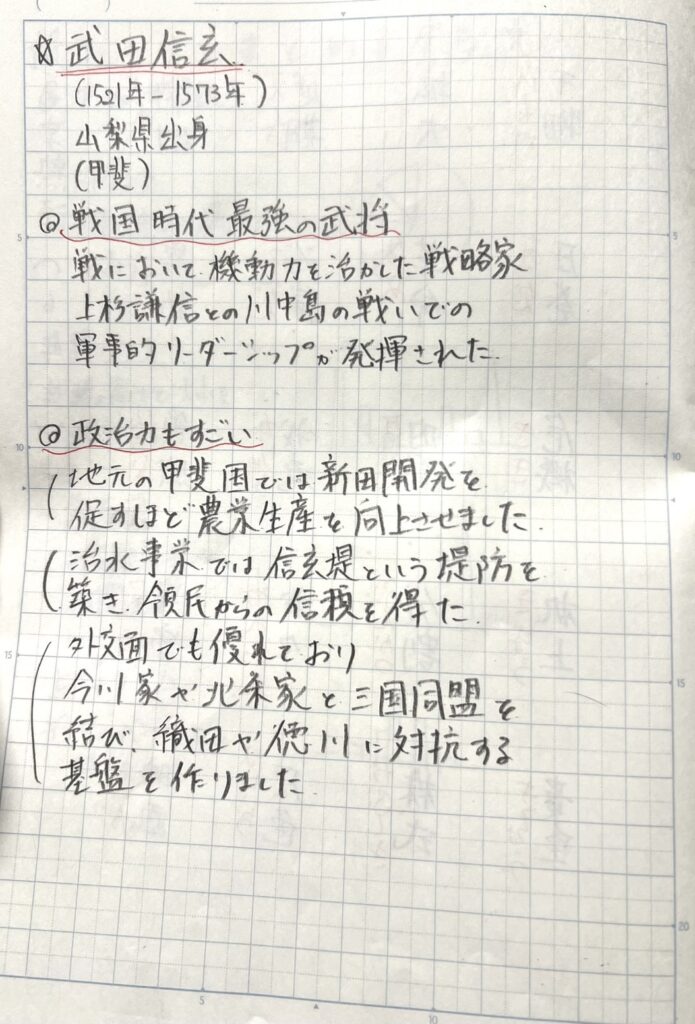 ☆ 武田信玄
(1521年-1573年)
山梨県出身
(甲斐)
◎ 戦国時代 最強の武将
戦において機動力を活かした戦略家
上杉謙信との川中島の戦いでの
軍事的リーダーシップが発揮された.
◎ 政治力もすごい
地元の甲斐国では新田開発を
促すほど農業生産を向上させました.
治水事業では信玄堤という堤防を
築き 領民からの信頼を得た.
外交面でも優れており
今川家や北条家と三国同盟を
結び、織田や徳川に対抗する
基盤を作りました.
5
10
15
5
10
15
20
5
10